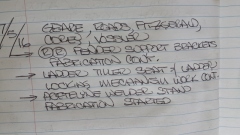 7/E/16
GRAPE, ROADS, FITZGERALD,
VOGELER
→ FENDER SUPPORT BRACKETS
FABRICATION CONT.
→ LADDER TILLER SEAT & LADDER
LOCKING MECHANISM WORK CONT.
→ ACETYLENE WELDER STAND
FABRICATION STARTED